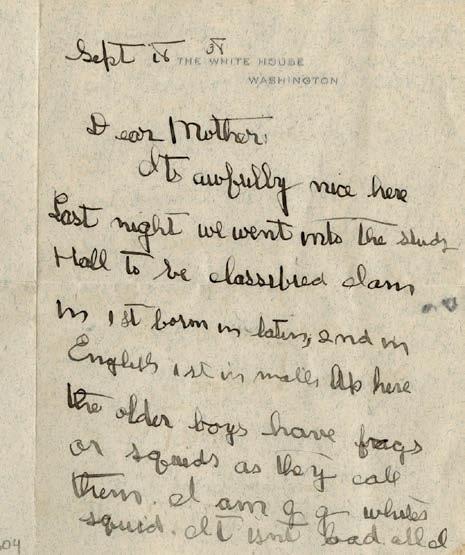 Sept
THE WHITE HOUSE
WASHINGTON
Dear Mother,
Its awfully nice here
Last night we went into the study
Hall to be classified I am
in 1st form in latin, 2nd in
English 1st in math Up here
the older boys have frags
or squids as they call
them. I am
squid. It isnt bad at al
04